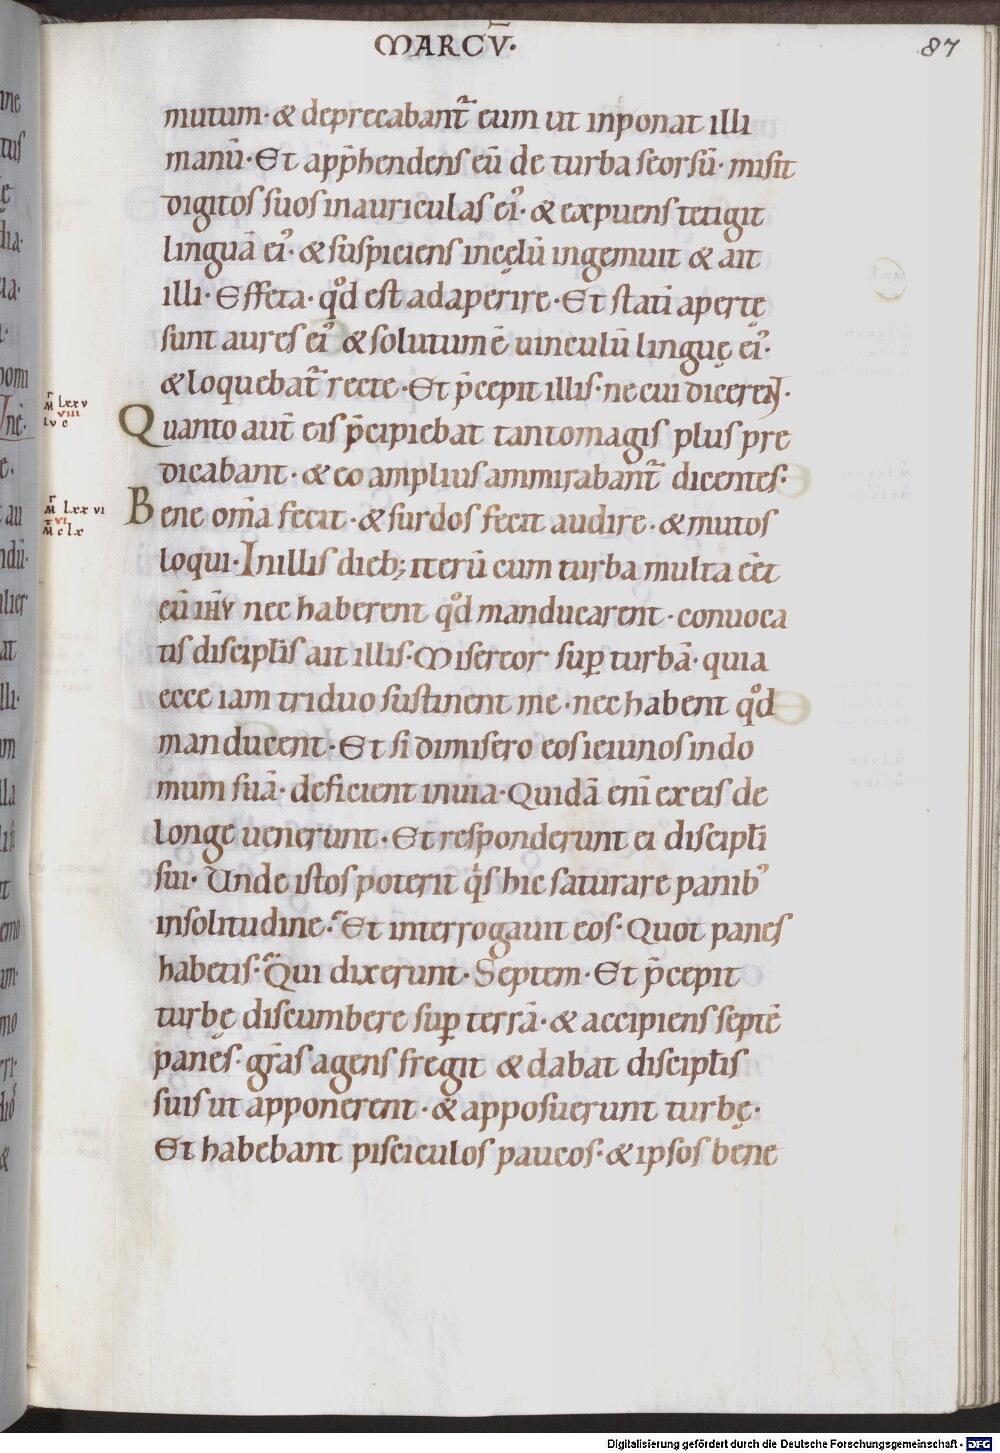 MARCV̄·
87
mutum· & deprecabant᷑ eum ut inponat illi
manū· Et app̄hendens eū de turba seorsū· misit
digitos suos inauriculas eiꝰ· & expuens tetigit
linguā eiꝰ· & suspiciens incęlū ingemuit & ait
illi· Effeta· qd̊ est adaperire· Et statī apertę
sunt aures eiꝰ & solutum ē uinculū linguę eiꝰ·
& loquebat᷑ recte· Et p̄cepit illis· ne cui dicerent·
Quanto aut̄ eis p̄cipiebat tantomagis plus pre
dicabant· & eo amplius ammirabant᷑ dicentes·
Bene om̄a fecit· & surdos fecit audire· & mutos
loqui· Inillis dieb; iterū cum turba multa eēt
cū ihu nec haberent qd̊ manducarent· conuoca
tis discipłis ait illis· Misereor suꝑ turbā· quia
ecce iam triduo sustinent me· nec habent qd̊
manducent· Et si dimisero eos ieiunos indo
mum suā· deficient inuia· Quidā eni͞ exeis de
longe uenerunt· Et responderunt ei discipłi
sui· Unde istos poterit qͥs hic saturare panibꝰ
insolitudine· Et interrogauit eos· Quot panes
habetis· Qui dixerunt· Septem· Et p̄cepit
turbę discumbere suꝑ terrā· & accipiens septē
panes· gr̄as agens fregit & dabat discipłis
suis ut apponerent· & apposuerunt turbę·
Et habebant pisciculos paucos· & ipsos bene
Digitalisierung gefördert durch die Deutsche Forschungsgemeinschaft - DFG